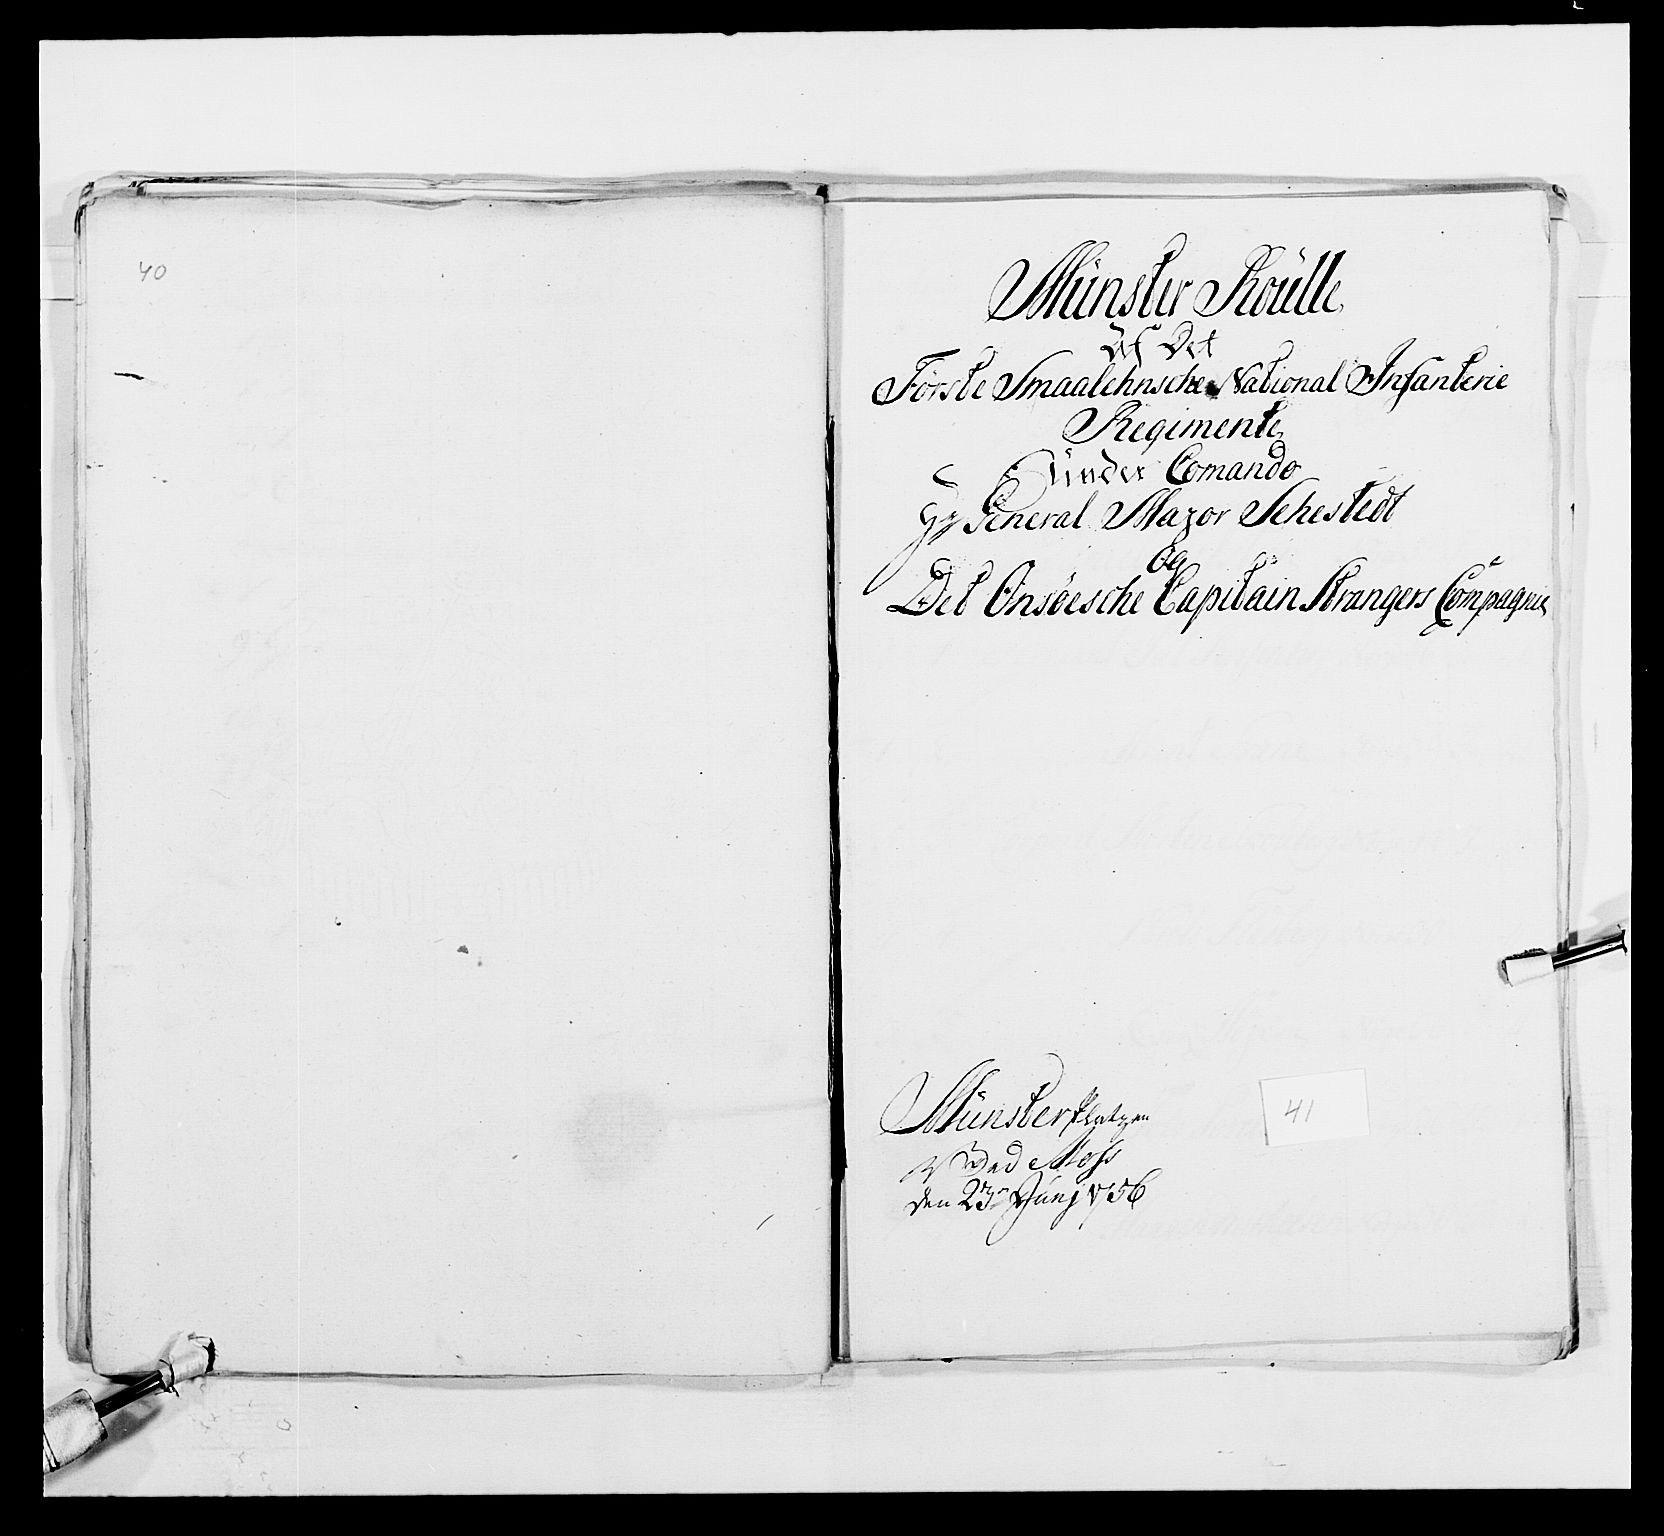 40
Münster Roülle
Af Det
Förste Smaalehnsche National Infanterie
Regimente
ünder Comando
General Major Sehestedt
Og
Det Onsöesche Capitain Strangers Compagnie
Münster Platzen
Ved Moss
den 23 Junj 1756
41